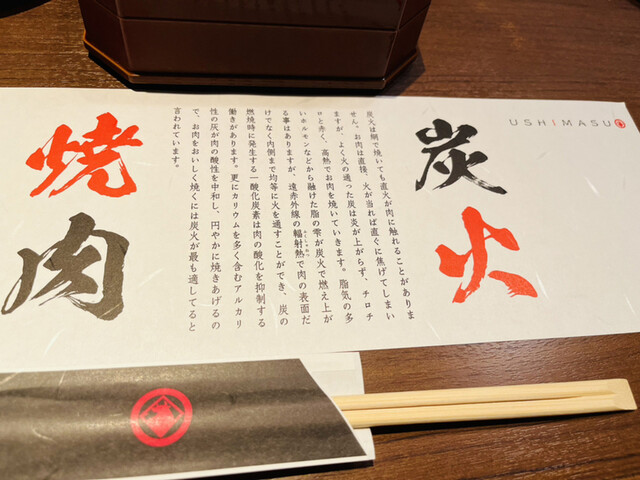 USHIMASU
炭火
炭火は網で焼いても直火が肉に触れることがありま
せん。お肉は直接、火が当れば直ぐに焦げてしまい
ますが、よく火の通った炭は炎が上がらず、チロチ
ロと赤く、高熱でお肉を焼いていきます。脂気の多
いホルモンなどから融けた脂の雫が炭火で燃え上が
る事はありますが、遠赤外線の輻射熱で肉の表面だ
けでなく内側まで均等に火を通すことができ、炭の
燃焼時に発生する一酸化炭素は肉の酸化を抑制する
働きがあります。更にカリウムを多く含むアルカリ
性の灰が肉の酸性を中和し、円やかに焼きあげるの
で、お肉をおいしく焼くには炭火が最も適してると
言われています。
焼肉